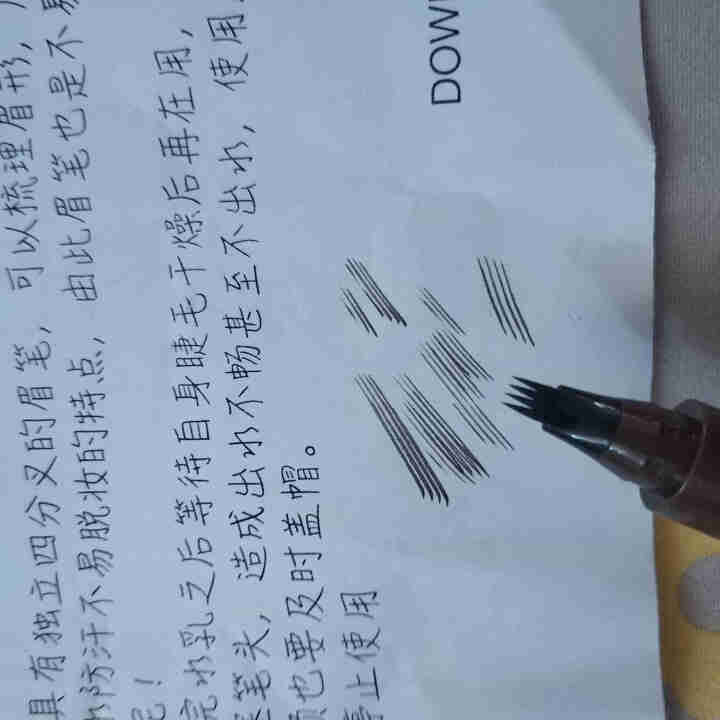 具有独立四分叉的眉笔，可以梳理眉形，
水防汗不易脱妆的特点，由此眉笔也是不易
呢！
完水乳之后等待自身睫毛干燥后再在用，
笔头，造成出水不畅甚至不出水，使用
也要及时盖帽。
停止使用
DOW